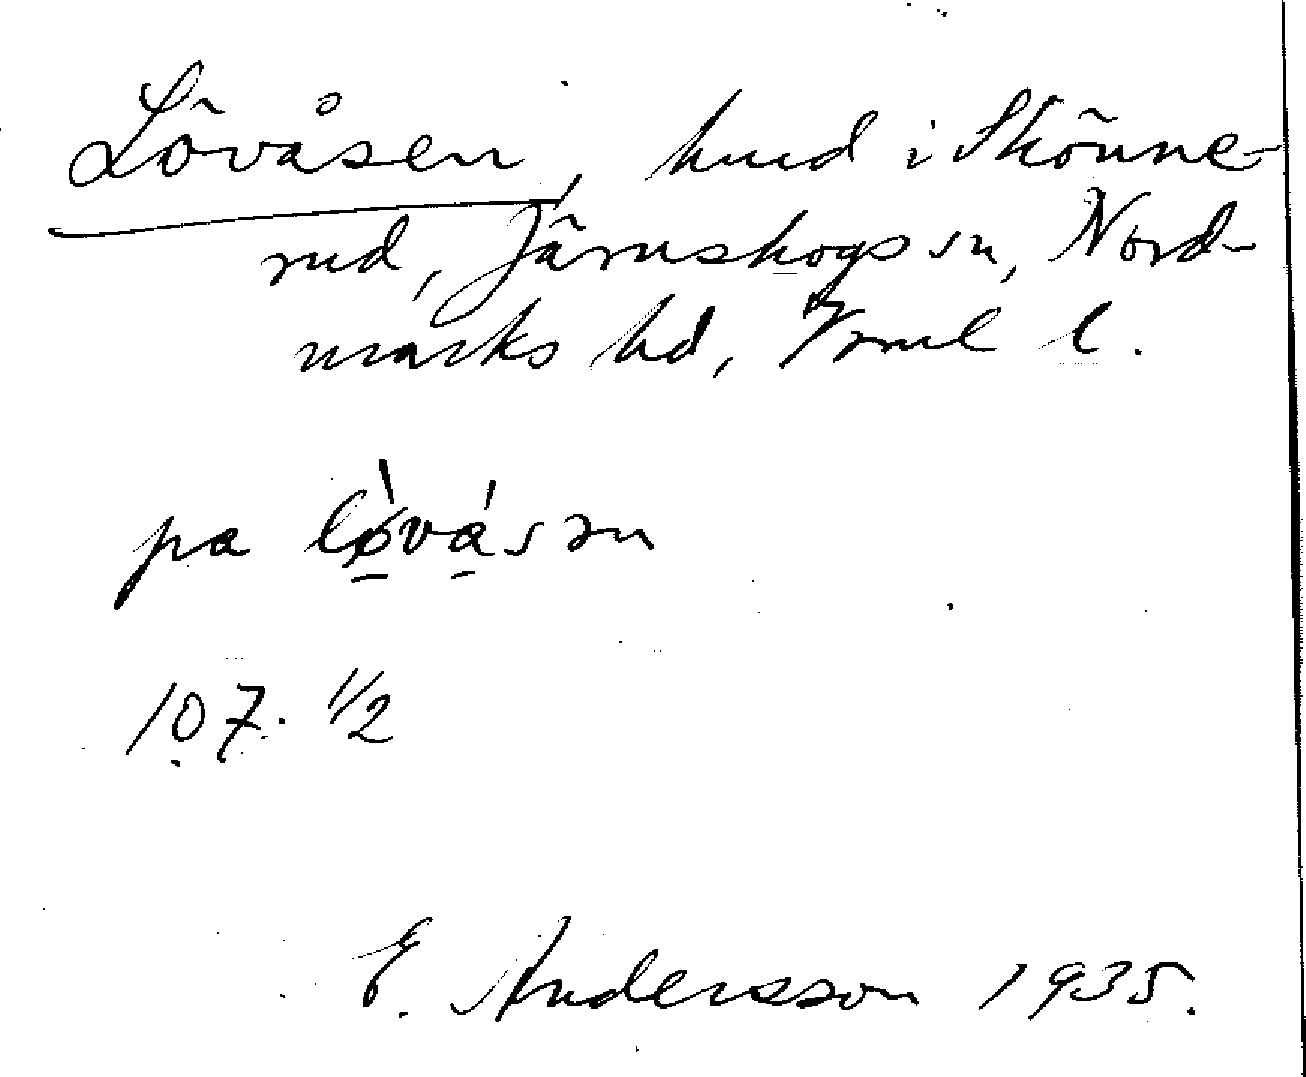 Lövåsen, hmd i Skönne-
rud, Järnskogs sn, Nord-
marks hd, Vrml l.
pa
107. 1/2
E. Andersson 1935.